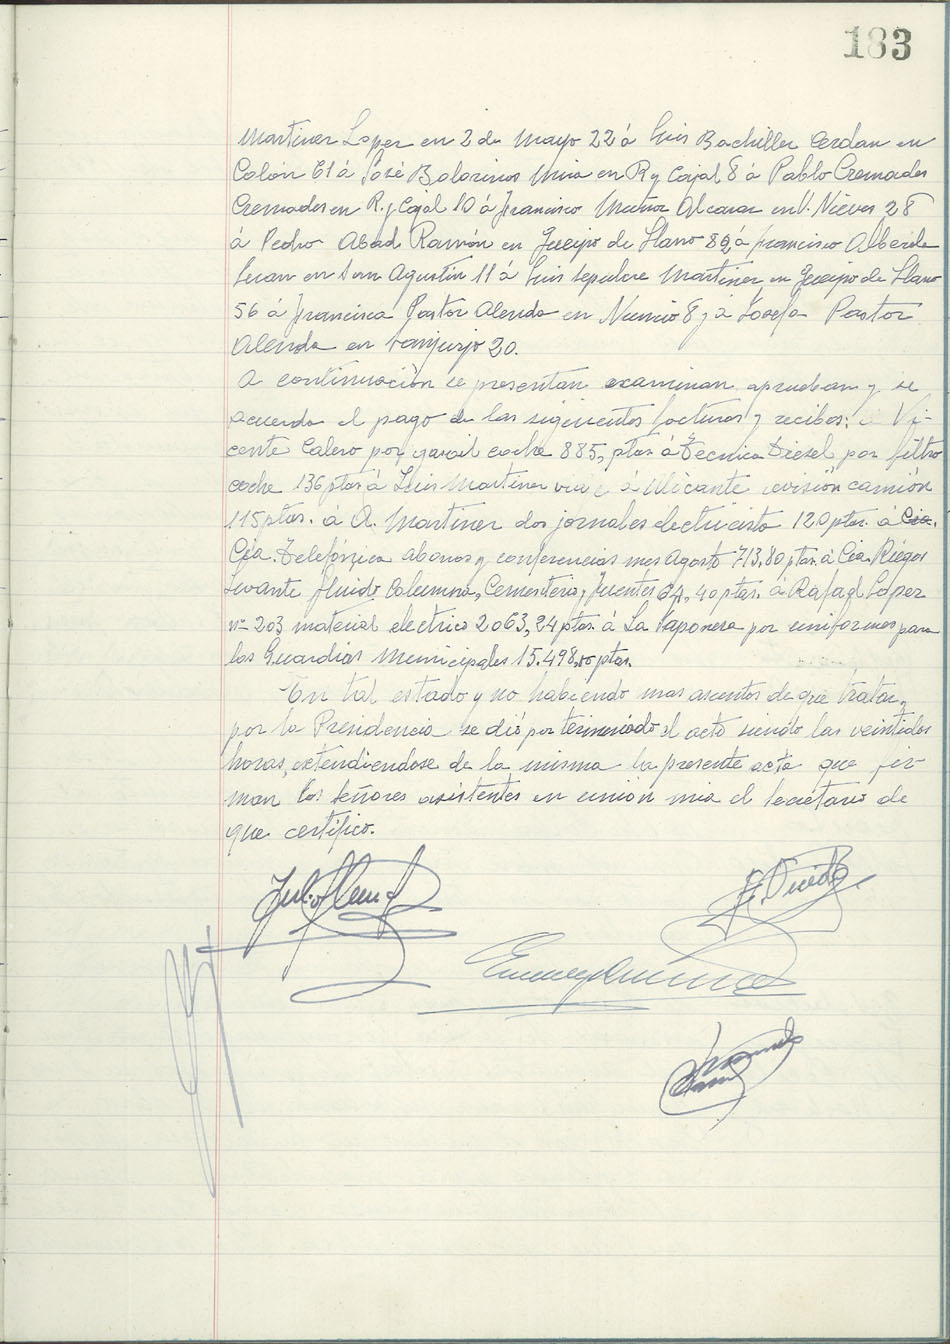 183
Martinez Lopez en 2 de Mayo 22 á Luis Bachiller Cerdan en
Colón 61 á José Balorinos Mira en R y Cajal 8 á Pablo Cremades
Cremades en R. y Cajal 10 á Francisco Muñoz Alcaraz en V. Nieves 28
á Pedro Abad Ramón en Queipo de Llano 82 á Francisco Alberola
en San Agustín 11 á Luis Sepulcre Martinez en Queipo de Llano
56 á Francisca Pastor Alenda en Nuncio 8 y á Josefa Pastor
Alenda en Sanjurjo 20.
A continuación se presentan examinan, aprueban y se
acuerda el pago de las siguientes facturas y recibos: á Vi-
cente Calero por gasoil coche 885, ptas á Tecnica Diesel por filtro
coche 136 ptas á Luis Martinez viaje á Alicante revisión camión
115 ptas. á A. Martinez dos jornales electricista 120 ptas. á Cia.
Cia. Telefónica abonos y conferencias mes Agosto 713,80 ptas. á Cia. Riegos
Levante fluido Columna, Cementerio, Fuentes 64,40 ptas. á Rafael Lopez
nº 203 material electrico 2063,24 ptas. á La Japonesa por uniformes para
los Guardias Municipales 15.498,10 ptas.
En tal estado y no habiendo mas asuntos de que tratar,
por la Presidencia se dió por terminado el acto siendo las veintidos
horas, extendiendose de la misma la presente acta que fir-
man los señores asistentes en unión mia el Secretario de
que certifico.